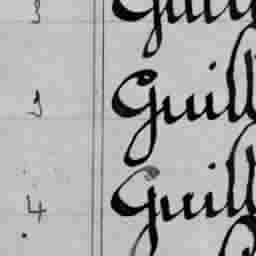 3 Guill
3 Guill
4 Guill